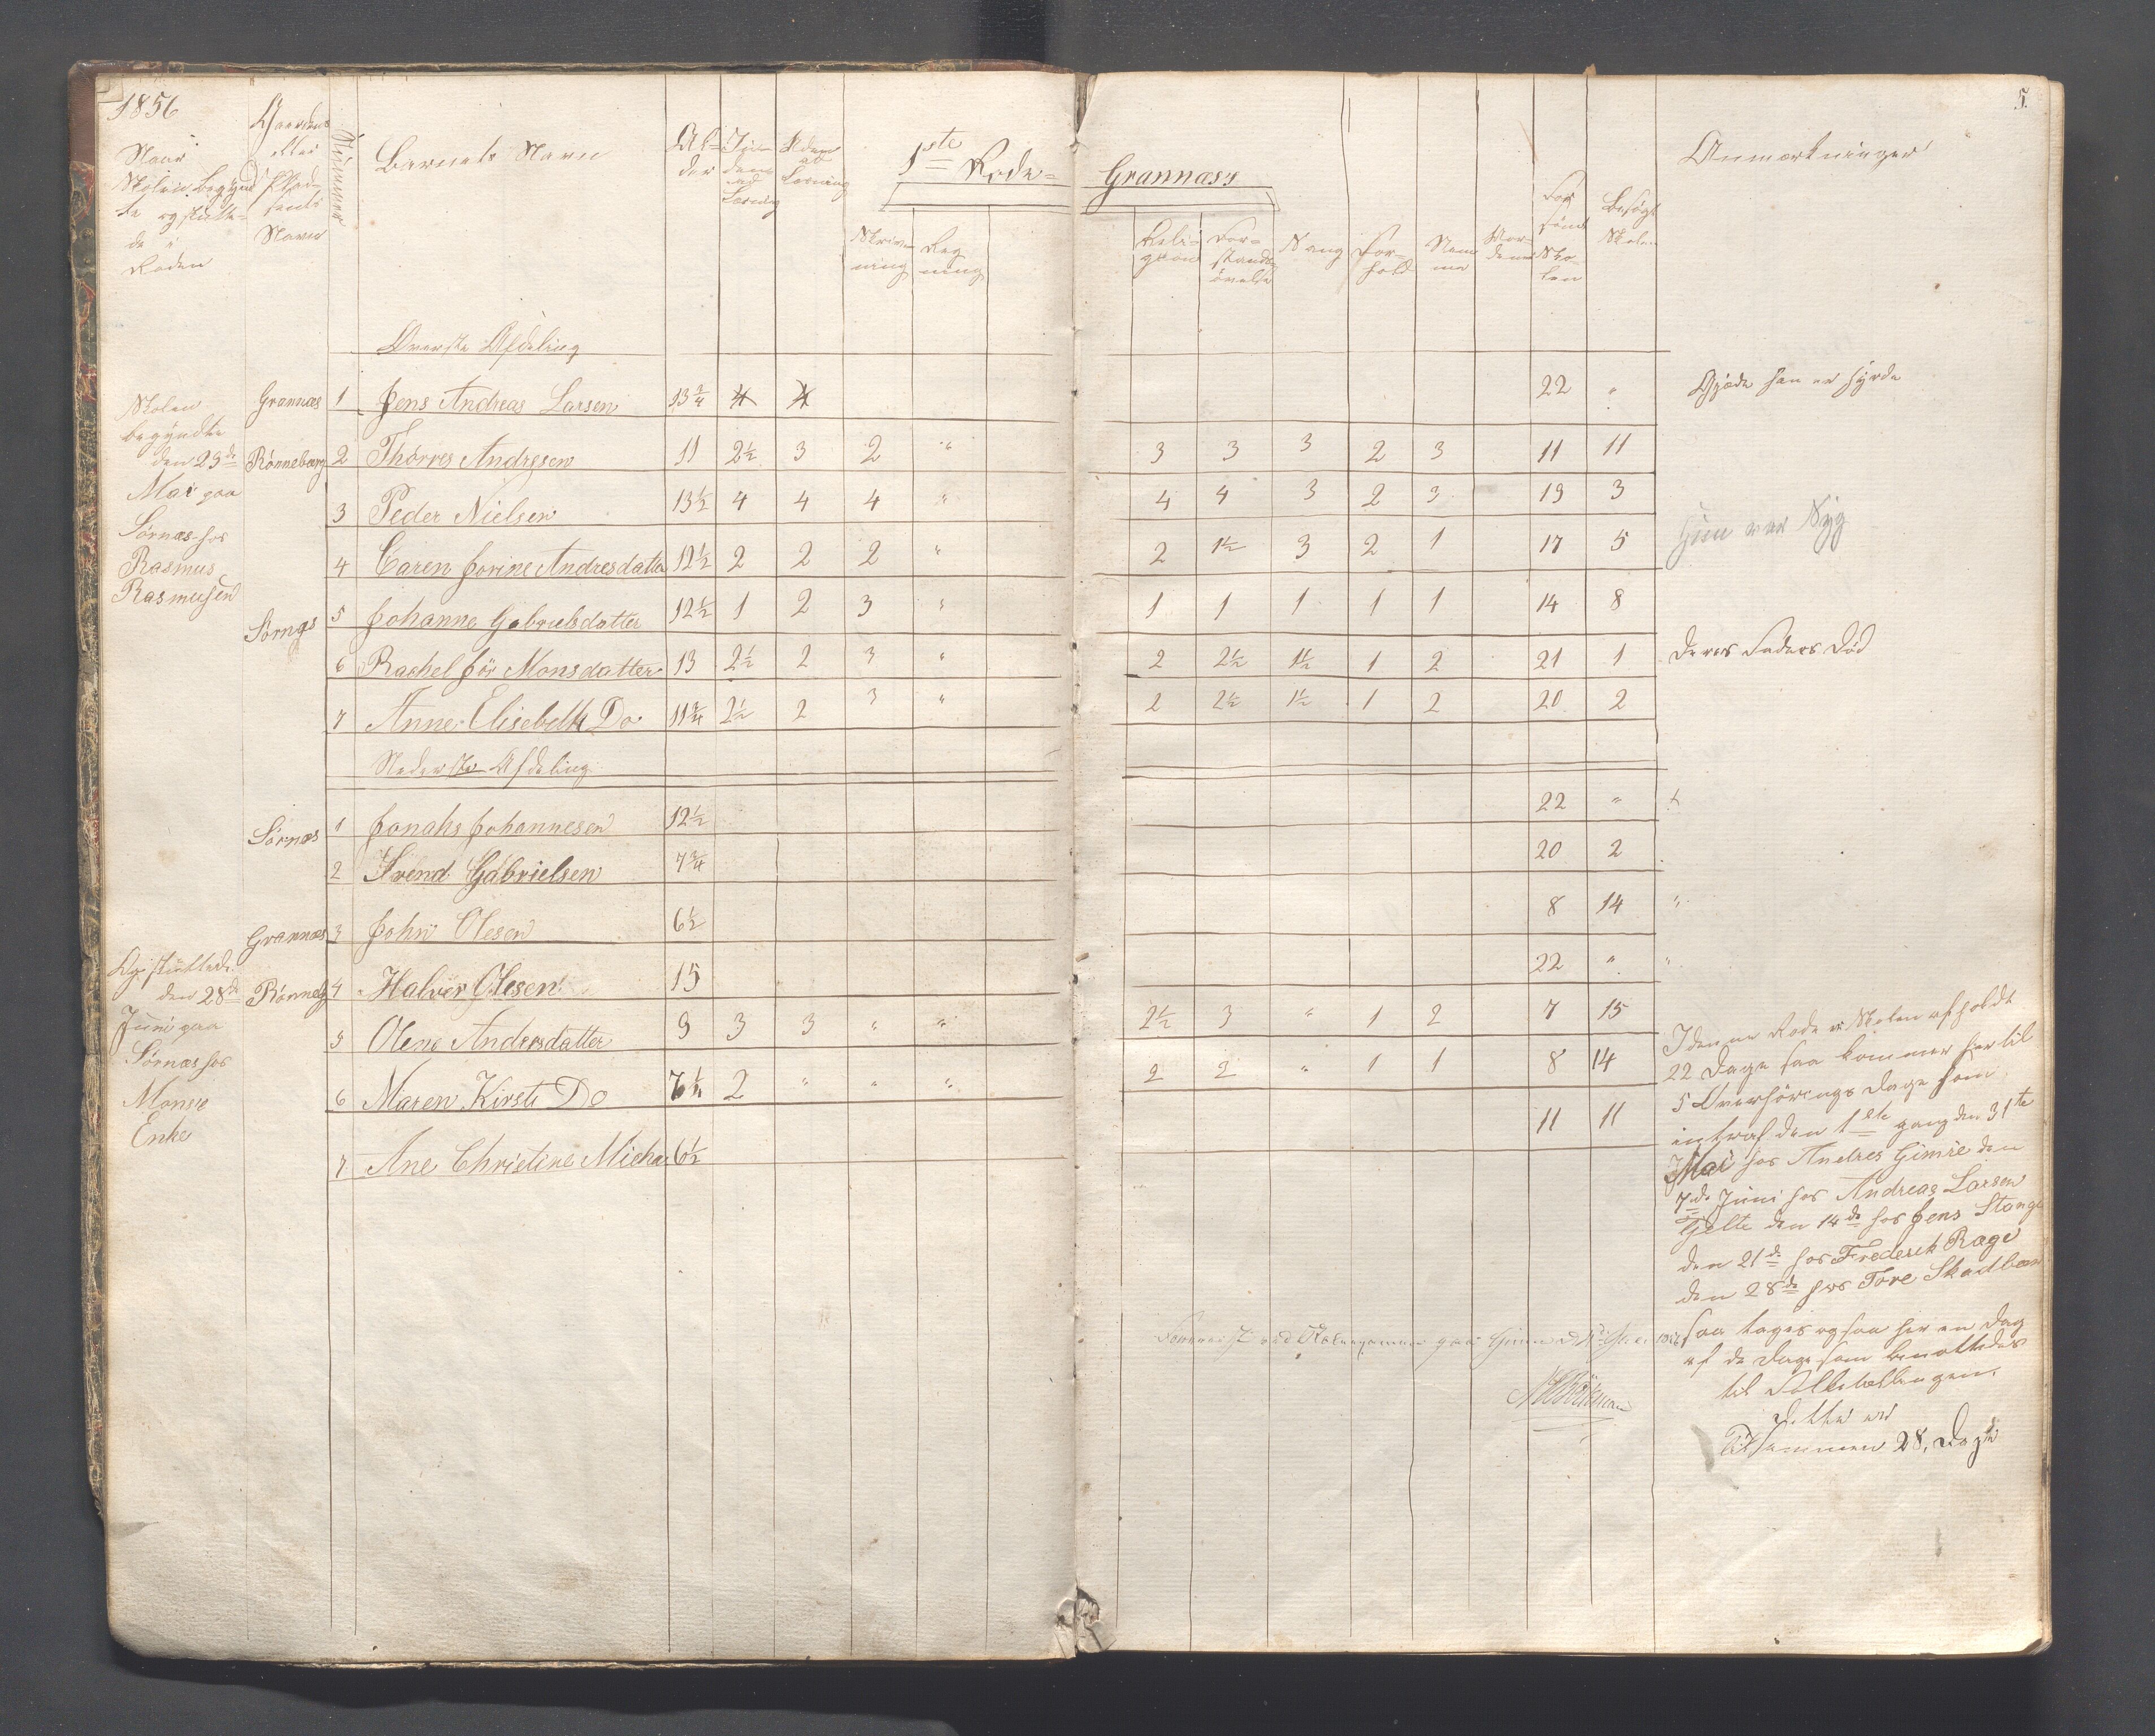 1856
5.
Naar
Skolen begynd
te og slutte-
de i
Roden
Gaardens
eller
Plad-
sens
Navn
Nummer
Barnets Navn
Al-
der
Inden-
ad
Læsning
Uden
ad
Læsning
1ste Rode=
Grannæss
Skriv-
ning
Reg
ning
Reli-
gion
For-
stands
øvelse
Sang
For-
hold
Nem
me
For
sømt
Sko-
len
Besøgt
Skolen
Anmærkninger
Øverste Afdeling
Grannæs 1 Jens Andreas Larsen 13 3/4 4 4 22 "
Rønneberg 2 Thorres Andresen 11 2½ 3 2 " 3 3 3 2 3 11 11
3 Peder Nielsen 13½ 4 4 4 " 4 4 3 2 3 19 3
4 Caren Jorine Andresdatter 12½ 2 2 2 " 2 1½ 3 2 1 17 5 Hun var Syg
Sørnæs 5 Johanne Gabrielsdatter 12½ 1 2 3 " 1 1 1 1 1 14 8
6 Rachel Jør Monsdatter 13 2½ 2 3 " 2 2½ 1½ 1 2 21 1 Deres Faders Død
7 Anne Elisebeth Do 11 3/4 2½ 2 3 " 2 2½ 1½ 1 2 20 2
Nederste Afdeling
Sørnæs 1 Jonahs Johannesen 12½ 22 "
2 Svend Gabrielsen 7 3/4 20 2
Grannæs 3 John Olesen 6½ 8 14 "
Rønnebg 4 Halvor Olesen 15 22 " "
5 Olene Andersdatter 9 3 3 " " 2½ 3 " 1 2 7 15
6 Maren Kirsti Do 7¼ 2 " " " 2 2 " 1 1 8 14
7 Ane Christine Micha 6½ 11 11
Skolen
begyndte
den 23de
Mai paa
Sørnæs hos
Rasmus
Rasmusen
Og sluttede
den 28de
Juni paa
Sørnæs hos
Monses
Enke
I denne Rode er Skolen afholdt
22 Dage saa kommer hertil
5 Overhørings Dage som
intraf den 1ste gang den 31te
Mai hos Andres Gimre den
7de Juni hos Andreas Larsen
Tjelte den 14de hos Jens Stange
den 21de hos Frederik Rage
den 28de hos Tore Skadbær
saa tages ogsaa her en Dag
af de Dage som benøttedes
til Folketællingen.
dette er
Tilsammen 28, Dage